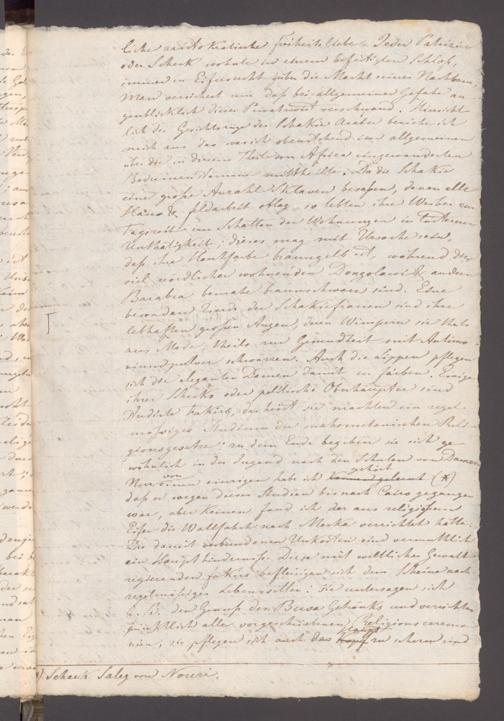 Eine aristokratische Freiheitsliebe. Jeder Patrizier
oder Scheck wohnte in einem befestigten Schloß,
immer in Eifersucht über die Macht seines Nachbarn
Man versichert uns daß bei allgemeiner Gefahr au
genblicklich dieser verschwand. Hinsicht
lich der Gesichtszüge der Schakie Araber beziehe ich
mich auf das was ich im allgemeinen
über die in diesem Theil von Africa eingewanderten
Beduinenstämme mittheilte. Da die Schakie
eine große Anzahl Sklaven besaßen, denen alle
Haus & Feldarbeit oblag, so lebten ihre Weiber zur
Tageszeit im Schatten der Wohnungen in
Unthätigkeit; dieses mag mit Ursache sein,
daß ihre Hautfarbe braungelb ist, während die
viel nördlicher wohnenden Dongolawi & andern
Barabra beinahe braunschwarz sind. Eine
besondere Zierde der Schakie frauen sind ihre
lebhaften großen Augen, deren Wimpern sie theils
aus Mode, theils zur Gesundheit mit Antimo
niumpulver schwärzen. Auch die Lippen pflegen
sich die eleganten Damen damit zu färben. Einige
ihrer Scheiks oder politische Oberhäupter sind
das heißt sie machten ein regel
mäßiges Studium der mahometanischen Reli
gionsgesetze; zu dem Ende begaben sie sich ge
wöhnlich in der Jugend nach den Schulen von Damer
Nur von einem einzigen habe ich gehört (*)
daß er wegen dieser Studien bis nach Cairo gegangen
war, aber keinen fand ich der aus religiösem
Eifer die Wallfahrt nach Mekka verrichtet hatte.
Die damit verbundenen Unkosten sind vermuthlich
ein Haupthinderniß. Diese mit weltlicher Gewalt
regierenden Fakirs befleißigen sich dem Scheine nach
regelmäßiger Lebenssitten: Sie untersagen sich
z. B. den Genuß des Busa Getränks und verrichten
pünktlich alle vorgeschriebenen Religionsceremo
nien; sie pflegen sich auch das Haupt zu scheren und
*) Scheik Saleg von Nouri.